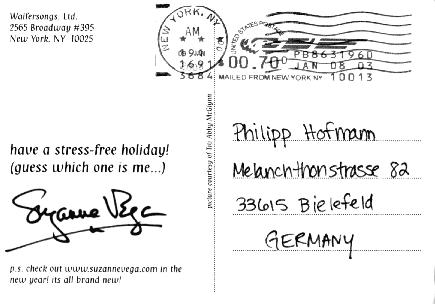 Waifersongs, Ltd.
2565 Broadway #395
New York, NY 10025
NEW YORK, NY
AM
1691
3684
UNITED STATES POSTAGE
00.70⁰
PB8631960
JAN 08 03
MAILED FROM NEW YORK NY 10013
have a stress-free holiday!
(guess which one is me...)
Suzanne Vega
p.s. check out www.suzannevega.com in the
new year! its all brand new!
picture courtesy of The Abby McGlynn
Philipp Hofmann
Melanchthonstrasse 82
33615 Bielefeld
GERMANY